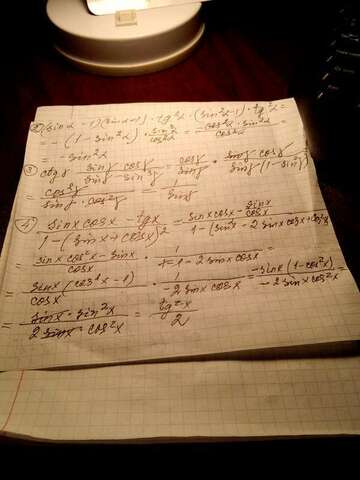 2) (sin α - 1)(sin α + 1) · tg²α = (sin²α - 1) · tg²α =
= -(1 - sin²α) · sin²α/cos²α = -cos²α · sin²α/cos²α =
= -sin²α
3) ctg γ · sin γ cos γ/sin γ - sin³γ = cos γ/sin γ · sin γ cos γ/sin γ (1 - sin²γ) =
= cos²γ/sin γ · cos²γ = 1/sin γ
4) sin x cos x - tg x/1 - (sin x + cos x)² = sin x cos x - sin x/cos x/1 - (sin²x - 2 sin x cos x + cos²x)
= sin x cos²x - sin x/cos x · 1/1 - 1 - 2 sin x cos x =
= sin x (cos²x - 1)/cos x · 1/-2 sin x cos x = -sin x (1 - cos²x)/-2 sin x cos²x =
= sin x · sin²x/2 sin x · cos²x = tg²x/2